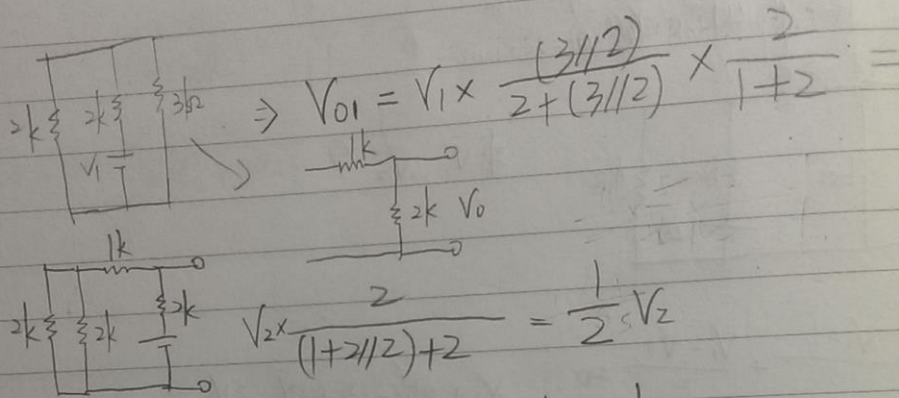 2k 2k 3kΩ V1
⇒ V01 = V1 × (3//2) / 2+(3//2) × 2 / 1+2 =
1k
2k V0
1k
2k 2k 2k
V2× 2 / (1+2//2)+2 = 1/2 V2